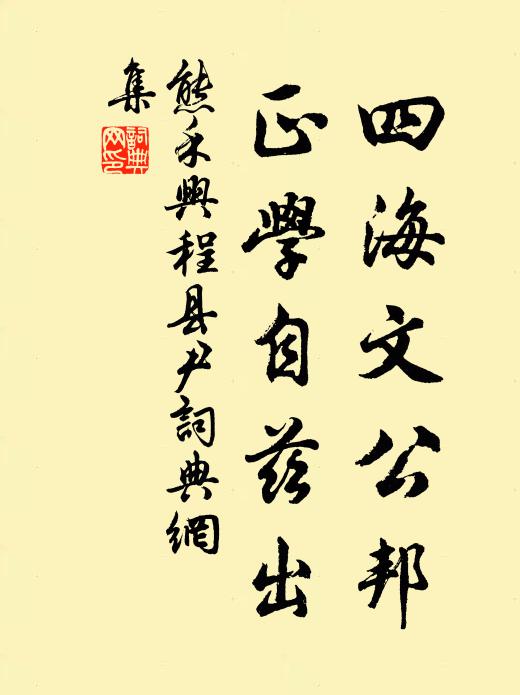 四海文公邦
正學自茲出
熊禾興程县尹詞典網
集
詞典網印